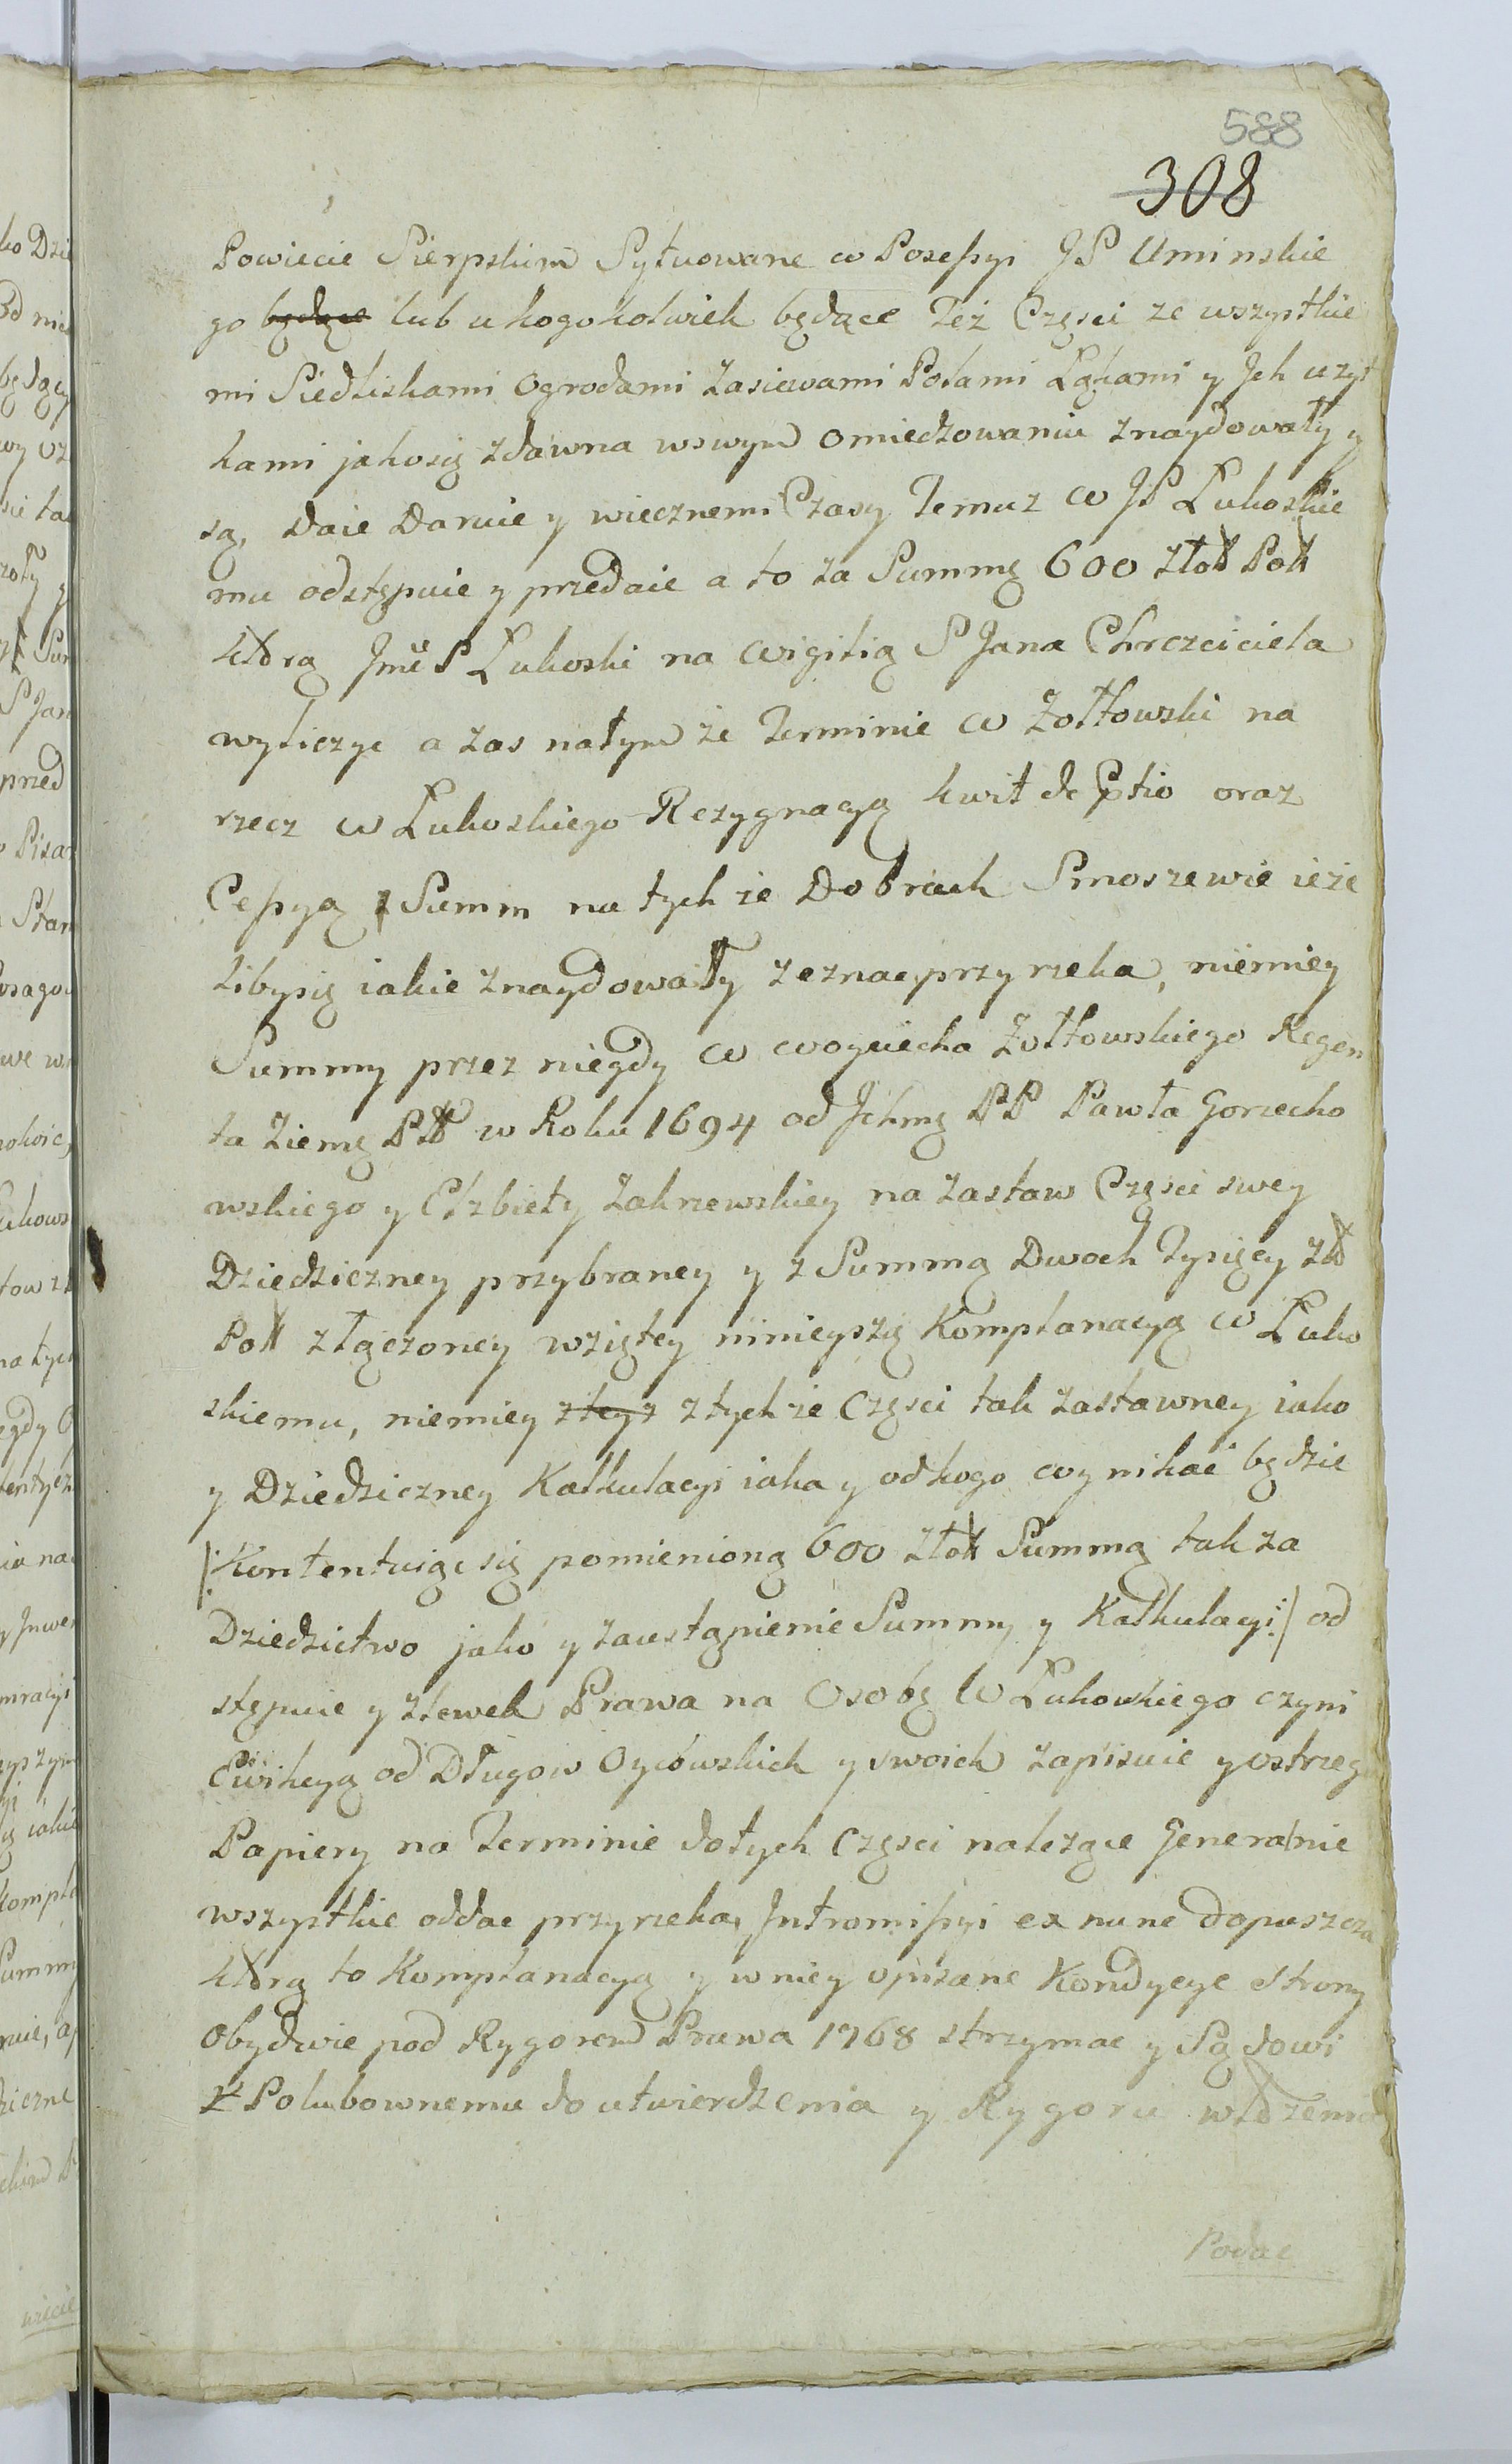 588
308
Powiecie Sierpskim Sytuowane w Posessyi JP Uminskie
go będące lub u kogokolwiek będące Też Częsci ze wszystkie
mi Siedliskami Ogrodami Zasiewami Polami Łąkami y Jch uzyt
kami jakosię zdawna wswym omiedzowaniu znaydowały y
są, daie Daruie y wiecznemi Czasy Temuz W JP Łukoskie
mu odstępuie y przedaie a to za Summę 600 złott Poll
ktorą Jmć P Łukoski na wigilią S Jana Chrzciciela
wyliczyc a zas natym że Terminie W Zołtowski na
rzecz W Łukoskiego Rezygnacyą kwit de Pptio oraz
Cessyą z Summ na tych ze Dobrach Smoszewie ieze
libysię iakie znaydowały zeznac przyrzeka, niemniey
Summy przez niegdy W Woyciecha Zołtowskiego Regen
ta Ziemę Płł w Roku 1694 od Jchmę PP Pawła Gorzecho
wskiego y Elzbiety Zakrzewskiey na Zastaw Częsci swey
Dziedziczney przybraney y z Summą Dwoch Tysięcy Zł
Poll złączoney wziętey ninieyszą Komplanacyą W Łuko
skiemu, niemiey zteyz ztychże Częsci tak Zastawney iako
y Dziedziczney Kalkulacyi iaka y odkogo wynikać będzie
/: Kontentuiąc się pomienioną 600 złott Summą tak za
Dziedzictwo jako y zaustąpienie Summy y Kalkulacyi :/ od
stępuie y zlewek Prawa na Osobę W Łukowskiego czyni
Ewikcyą od Długow Oycowskich y swoich zapisuie y ostrzega
Papiery na Terminie dotych Częsci nalezące Generalnie
wszystkie oddac przyrzeka, Jntromissyi ex nunc dopuszcza
ktorą to Komplanacyą y wniey opisane Kondycye Strony
Obydwie pod Rygorem Prawa 1768 strzymac y Sądowi
Polubownemu do utwierdzenia y Rygoru
Podac